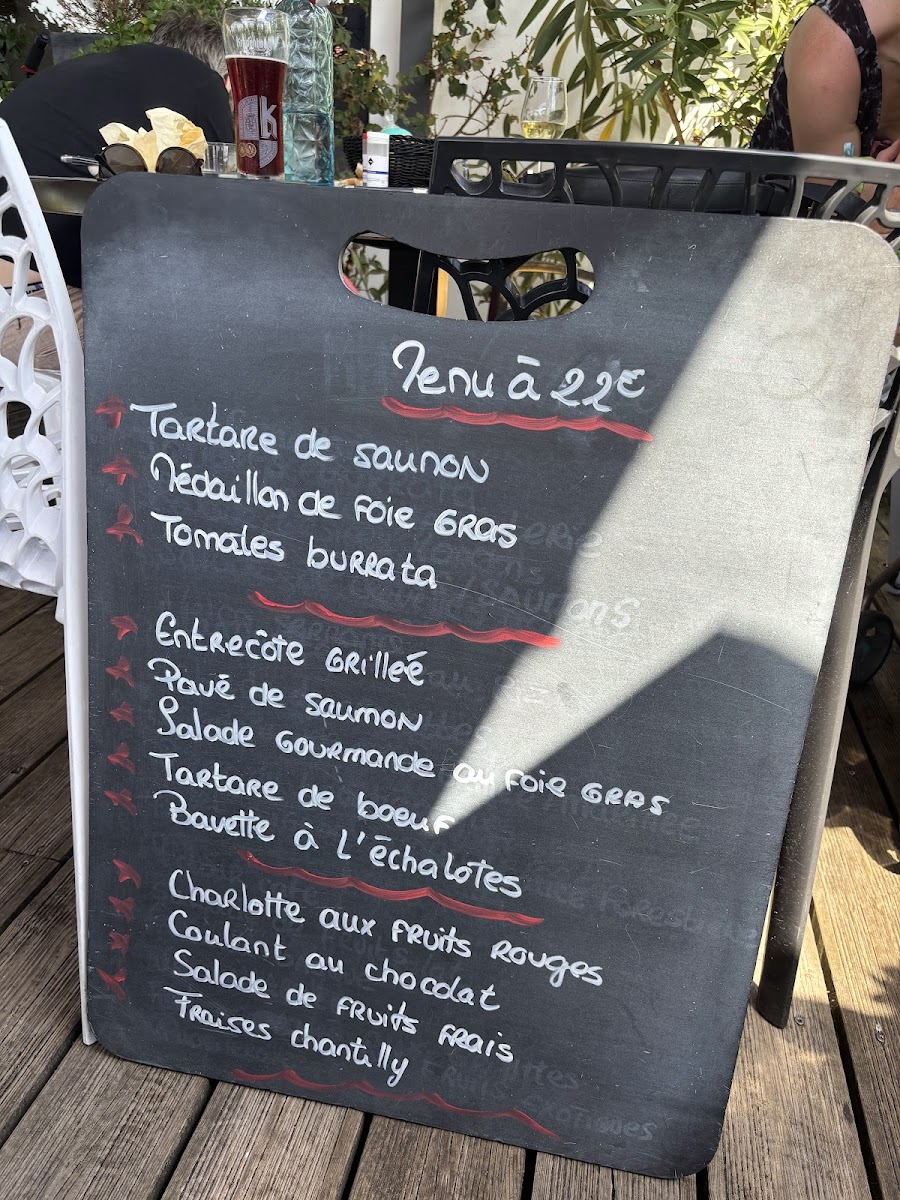 Menu à 22€
Tartare de saumon
Médaillon de Foie GRAS
Tomates burrata
Entrecôte Grilleé
Pavé de saumon
Salade Gourmande au Foie GRAS
Tartare de boeuf
Bavette à L'échalotes
Charlotte aux fruits Rouges
Coulant au chocolat
Salade de fruits frais
Fraises chantilly